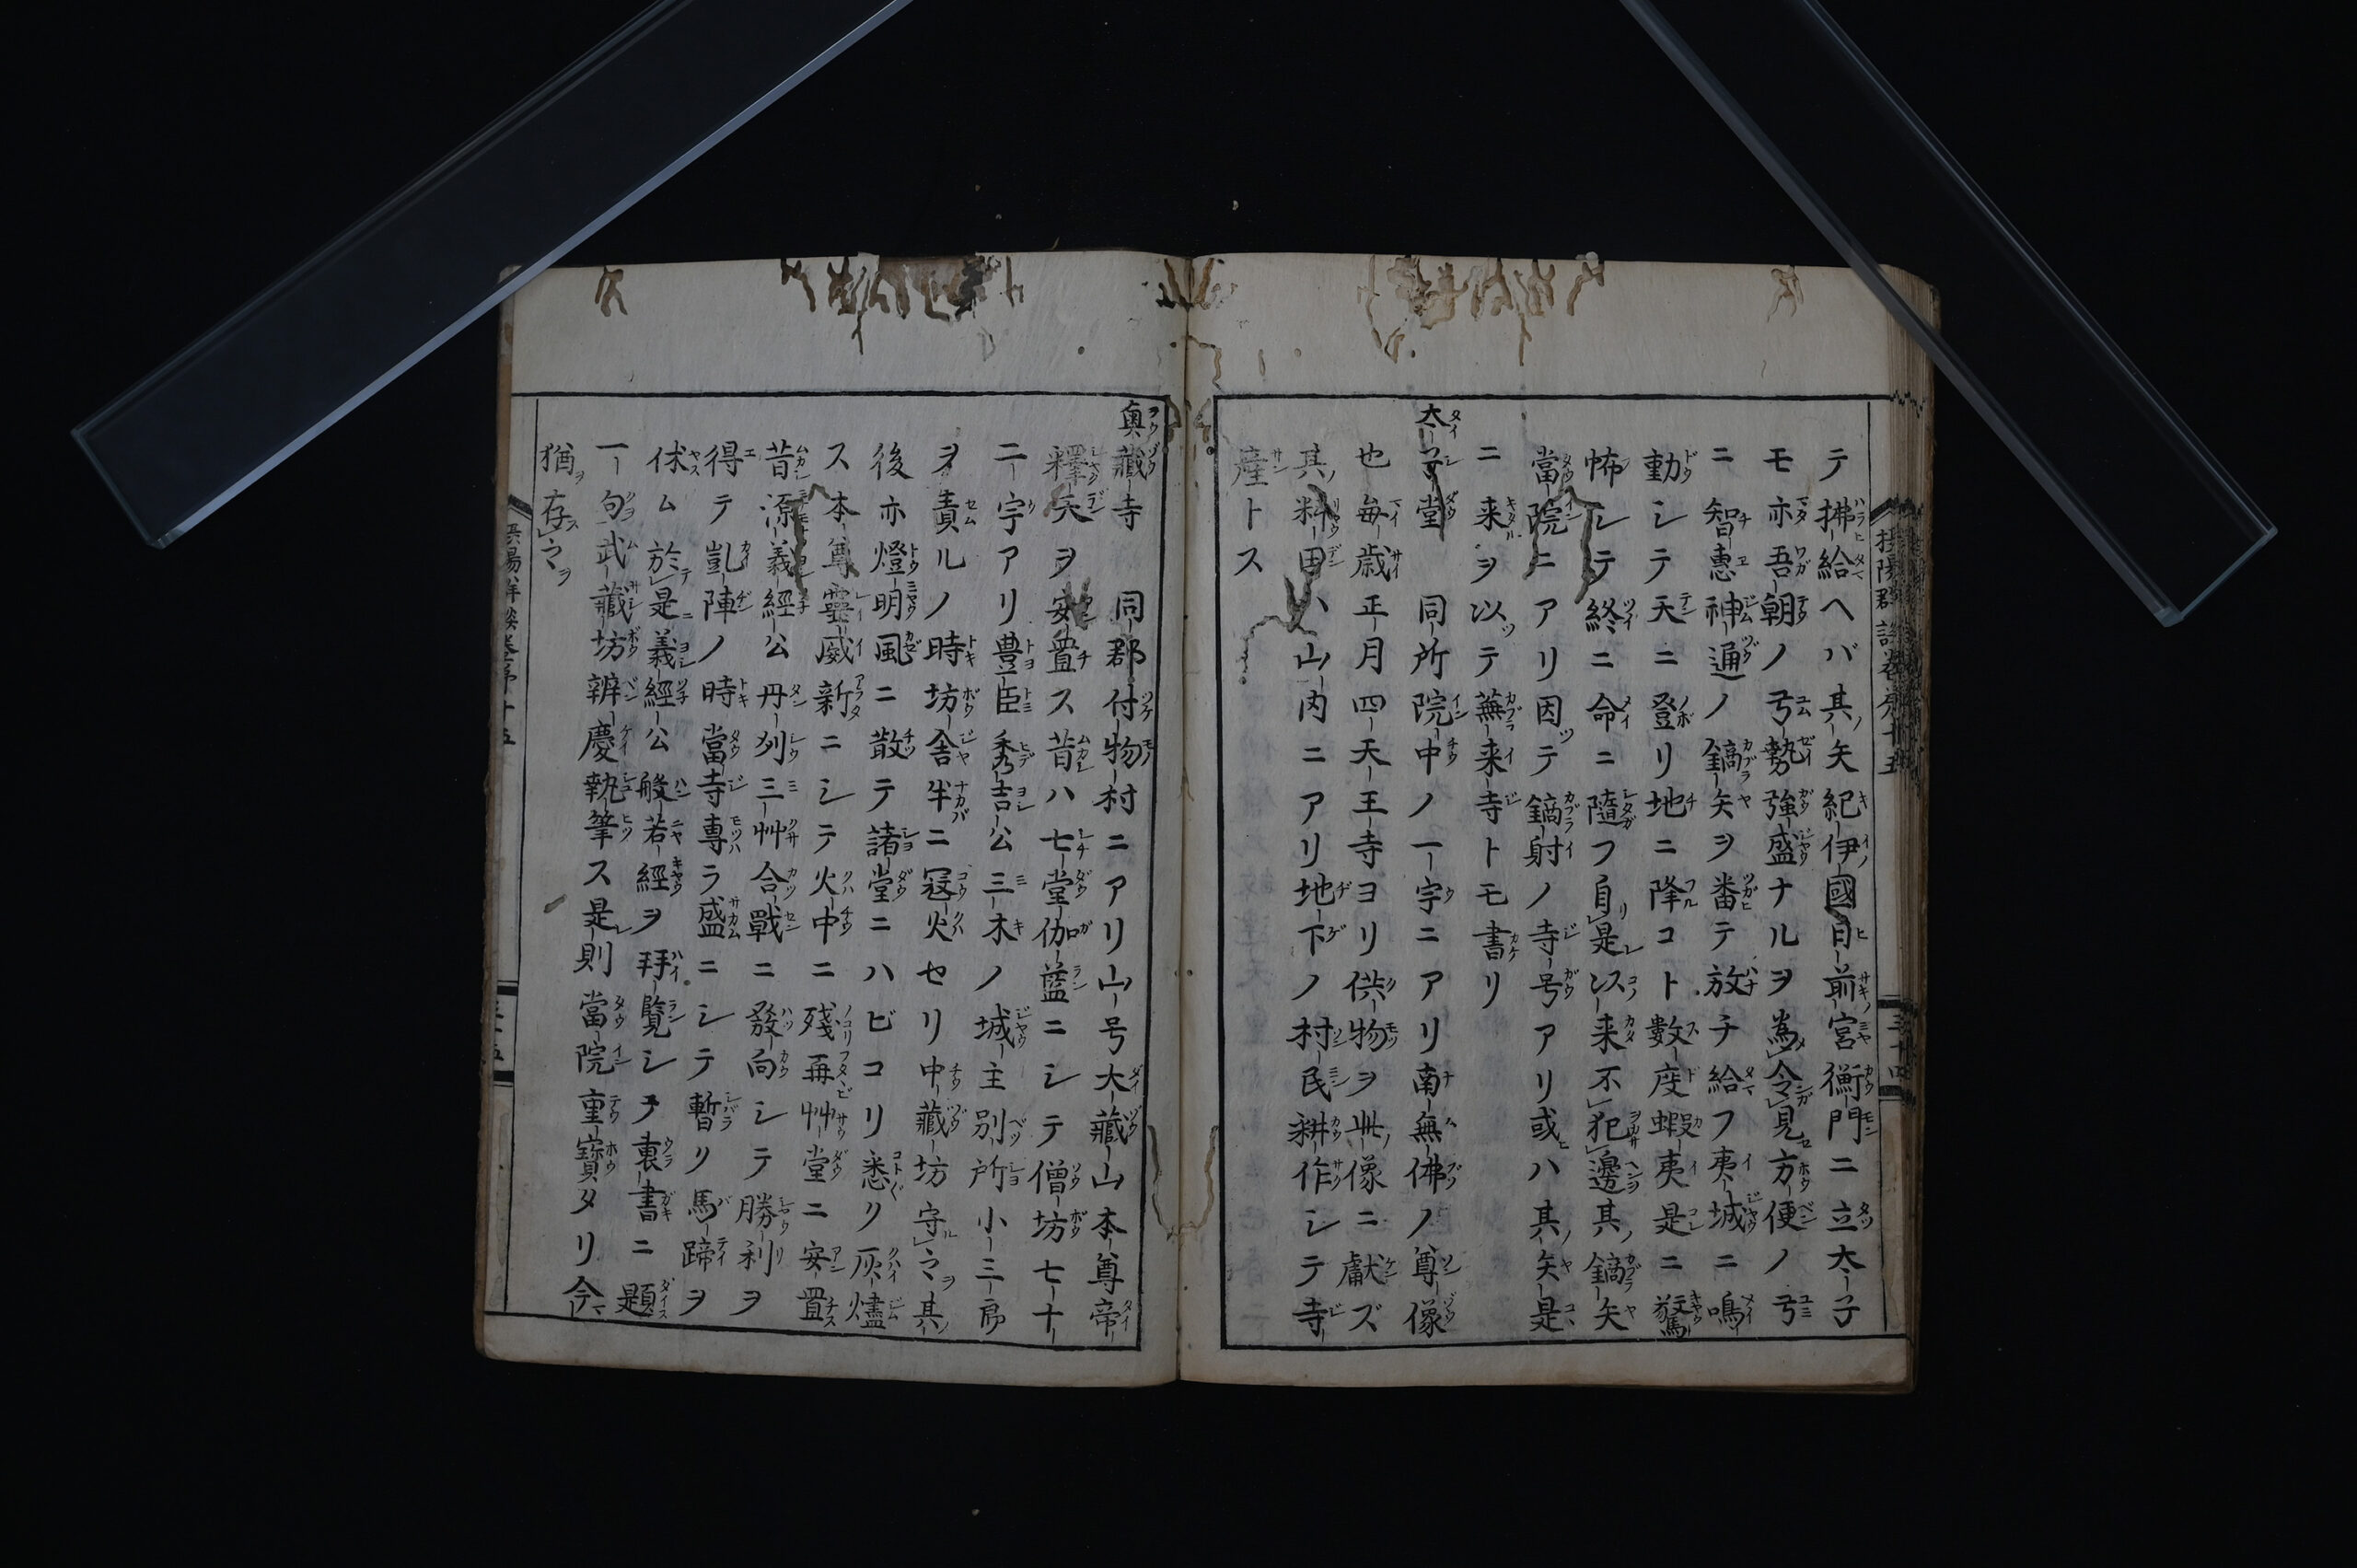 テ拂給ヘバ其矢紀伊國日前宮衡門ニ立太子
モ亦吾朝ノ弓勢強盛ナルヲ為令見方便ノ弓
ニ智惠神通ノ鏑矢ヲ番テ放チ給フ夷城ニ鳴
動シテ天ニ登リ地ニ降コト數度蝦夷是ニ驚
怖レテ終ニ命ニ隨フ自是以来不犯邊其鏑矢
當院ニアリ因テ鏑射ノ寺号アリ或ハ其矢是
ニ来ヲ以テ蕪来寺トモ書リ
太子堂 同所院中ノ一宇ニアリ南無佛ノ尊像
也毎歳正月四天王寺ヨリ供物ヲ此像ニ獻ズ
其料田ハ山内ニアリ地下ノ村民耕作シテ寺
産トス
奥藏寺 同郡付物村ニアリ山号大藏山本尊帝
釋天ヲ安置ス昔ハ七堂伽藍ニシテ僧坊七十
二宇アリ豊臣秀吉公三木ノ城主別所小三郎
ヲ責ルノ時坊舎半ニ冦火セリ中藏坊守之其
後亦燈明風ニ散テ諸堂ニハビコリ悉ク灰燼
ス本尊靈威新ニシテ火中ニ殘再艸堂ニ安置
昔源義經公丹列三艸合戰ニ發向シテ勝利ヲ
得テ凱陣ノ時當寺専ラ盛ニシテ暫リ馬蹄ヲ
休ム於是義經公般若經ヲ拜覧シテ裏書ニ題
一句武藏坊辨慶執筆ス是則當院重寶タリ今
猶存之